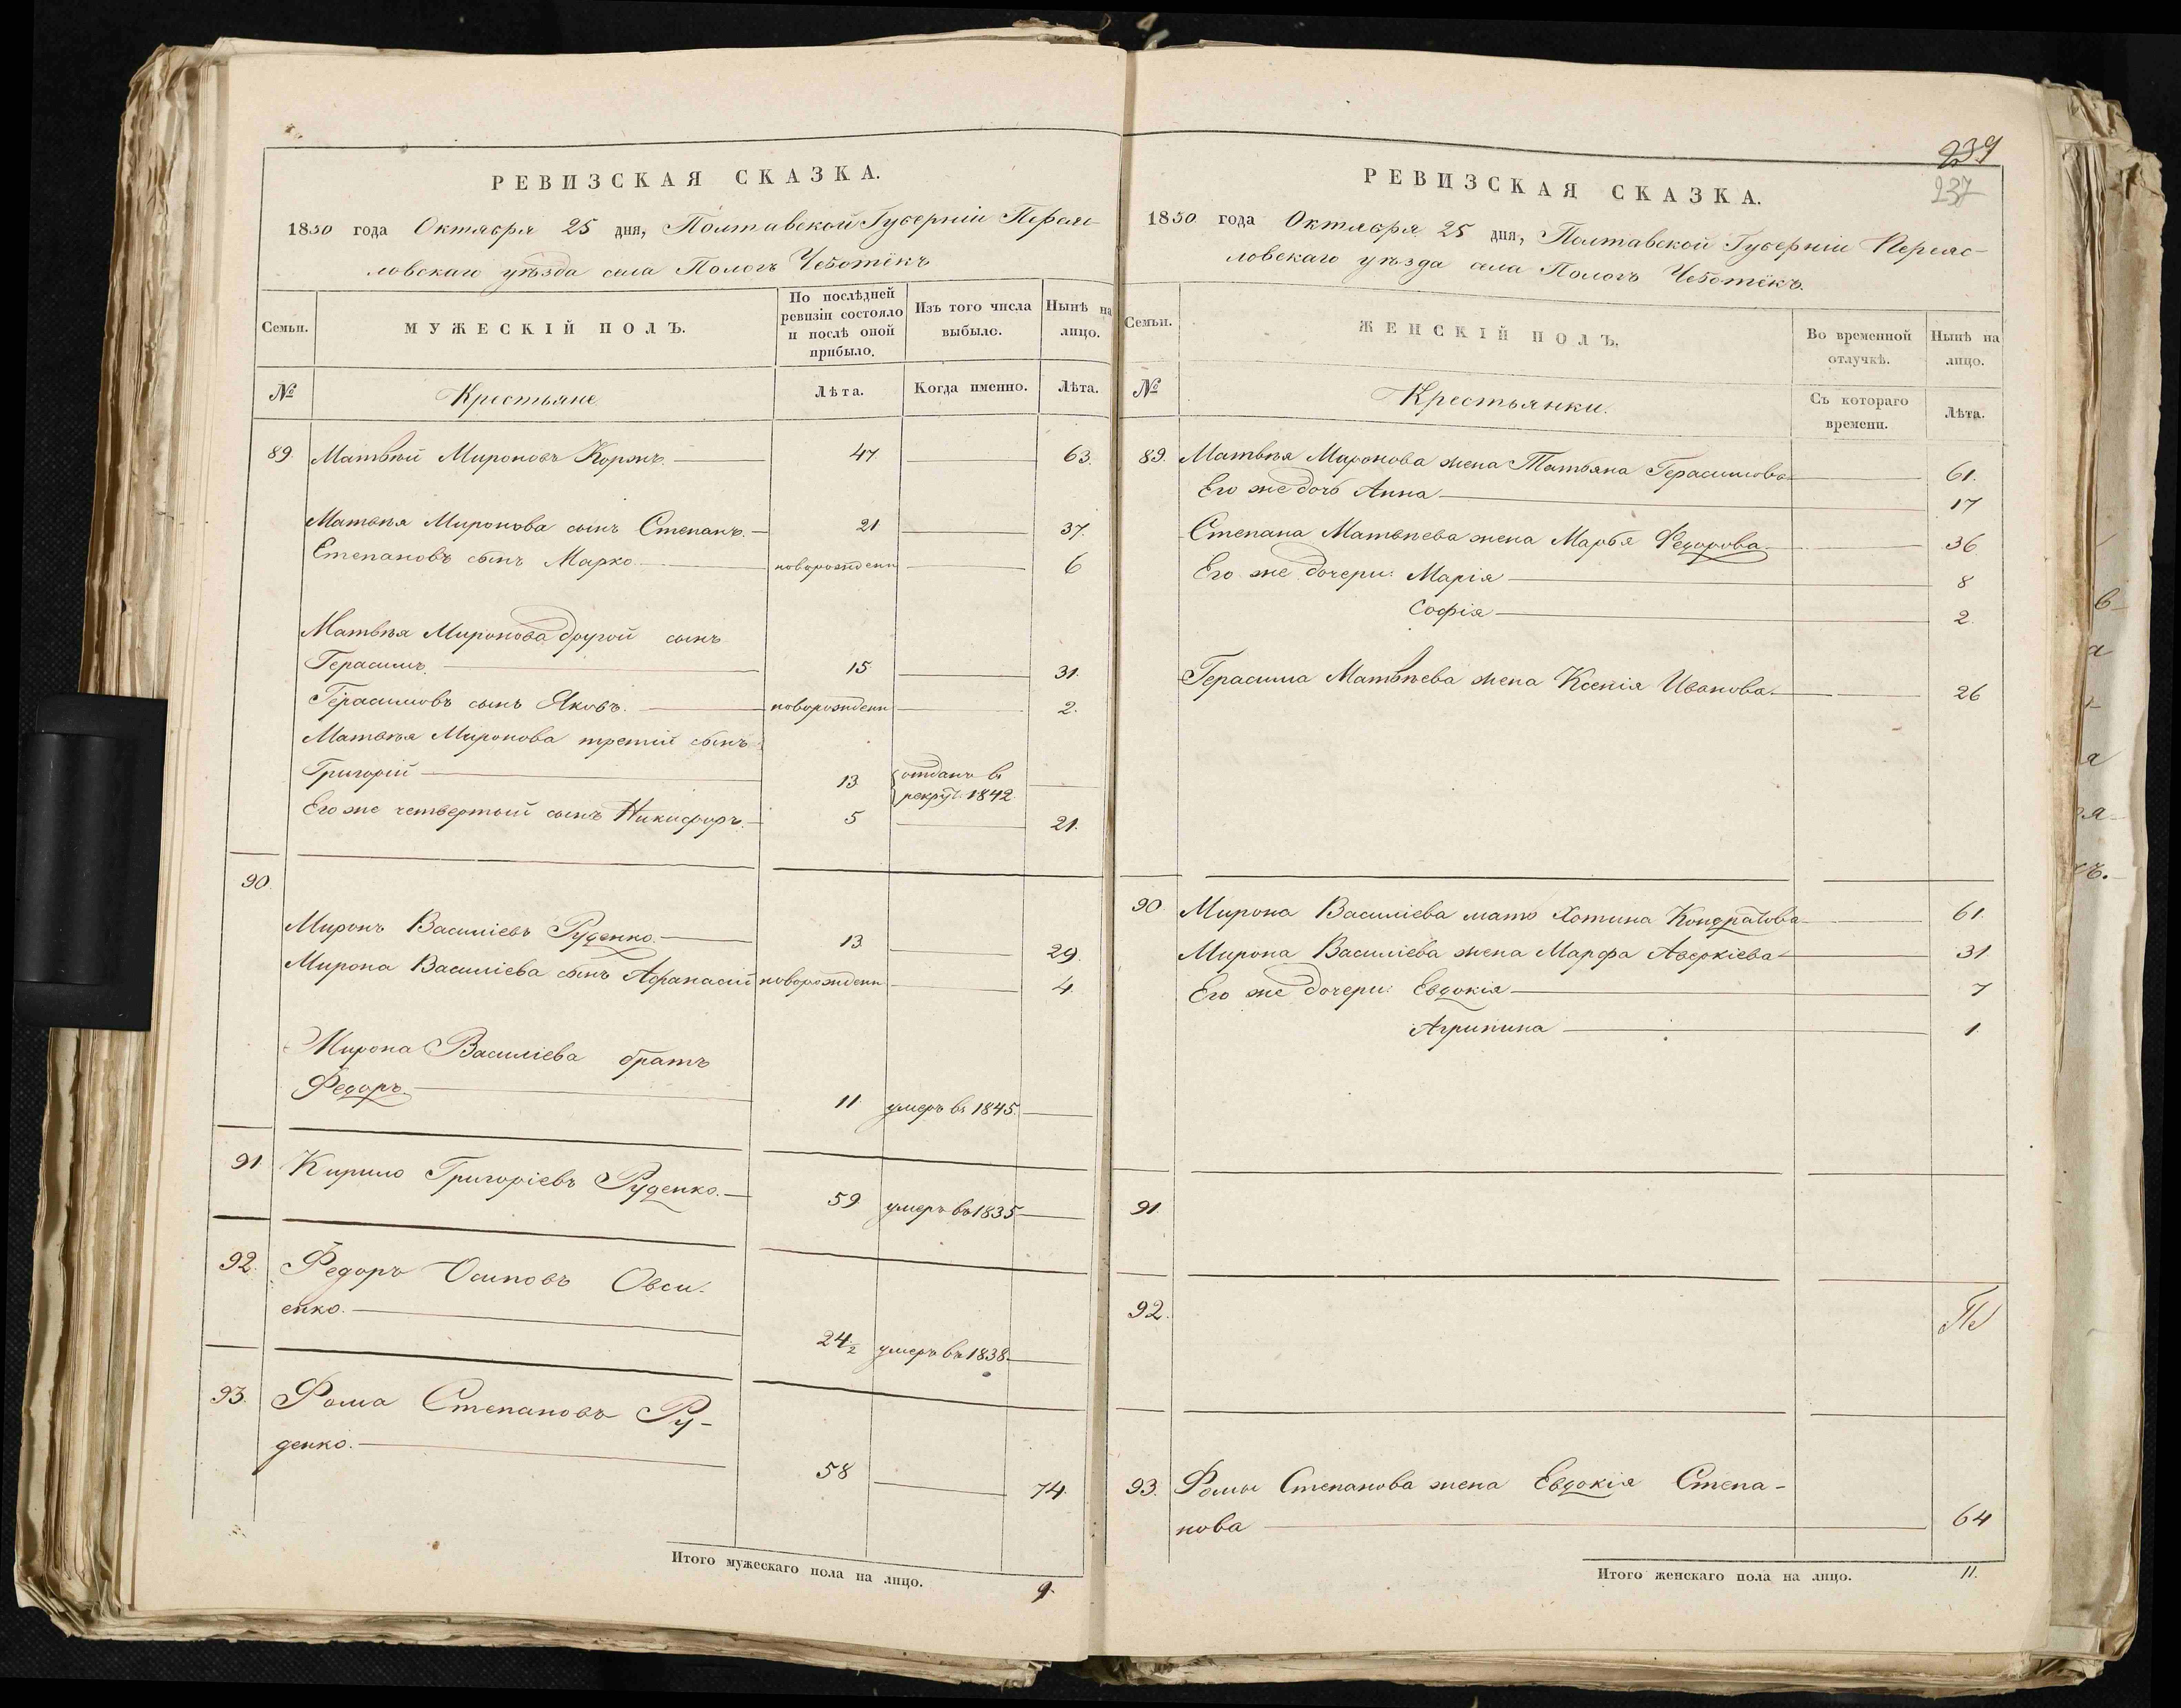 РЕВИЗСКАЯ СКАЗКА.
1850 года Октября 25 дня, Полтавской Губерніи Переяс-
ловскаго уѣзда села Пологъ Чеботёкъ
Семьи.
МУЖЕСКІЙ ПОЛЪ.
По послѣдней
ревизіи состояло
и послѣ оной
прибыло.
Изъ того числа
выбыло.
Нынѣ на
лицо.
№
Крестьяне
Лѣта.
Когда именно.
Лѣта.
89. Матвѣй Мироновъ Коржъ. 47 63.
Матвѣя Миронова сынъ Степанъ. 21 37.
Степановъ сынъ Марко новорожденн 6
Матвѣя Миронова другой сынъ
Герасимъ. 15 31.
Герасимовъ сынъ Яковъ. новорожденн 2.
Матвѣя Миронова третій сынъ
Григорій 13 отданъ въ
рекрут. 1842.
Его же четвертый сынъ Никифоръ. 5 21.
90.
Миронъ Василіевъ Руденко. 13 29.
Мирона Василіева сынъ Афанасій новорожденн 4.
Мирона Василіева братъ
Федоръ. 11 умеръ въ 1845.
91 Кирило Григоріевъ Руденко. 59 умеръ въ 1835
92. Федоръ Осиповъ Овси-
енко. 24½ умеръ въ 1838.
93. Фома Степановъ Ру-
денко. 58 74.
Итого мужескаго пола на лицо. 9.
239
237
РЕВИЗСКАЯ СКАЗКА.
1850 года Октября 25 дня, Полтавской Губерніи Переяс-
ловскаго уѣзда села Пологъ Чеботёкъ.
Семьи.
ЖЕНСКІЙ ПОЛЪ.
Во временной
отлучкѣ.
Нынѣ на
лицо.
№
Крестьянки.
Съ котораго
времени.
Лѣта.
89. Матвѣя Миронова жена Татьяна Герасимова 61.
Его же дочь Анна 17
Степана Матвѣева жена Марья Федорова 36
Его же дочери: Марія 8
Софія 2.
Герасима Матвѣева жена Ксенія Иванова. 26
90 Мирона Василіева мать Хотина Кондратова 61.
Мирона Василіева жена Марфа Аверкіева 31
Его же дочери: Евдокія 7
Агрипина 1.
91.
92.
93. Фомы Степанова жена Евдокія Степа-
нова 64
Итого женскаго пола на лицо. 11.